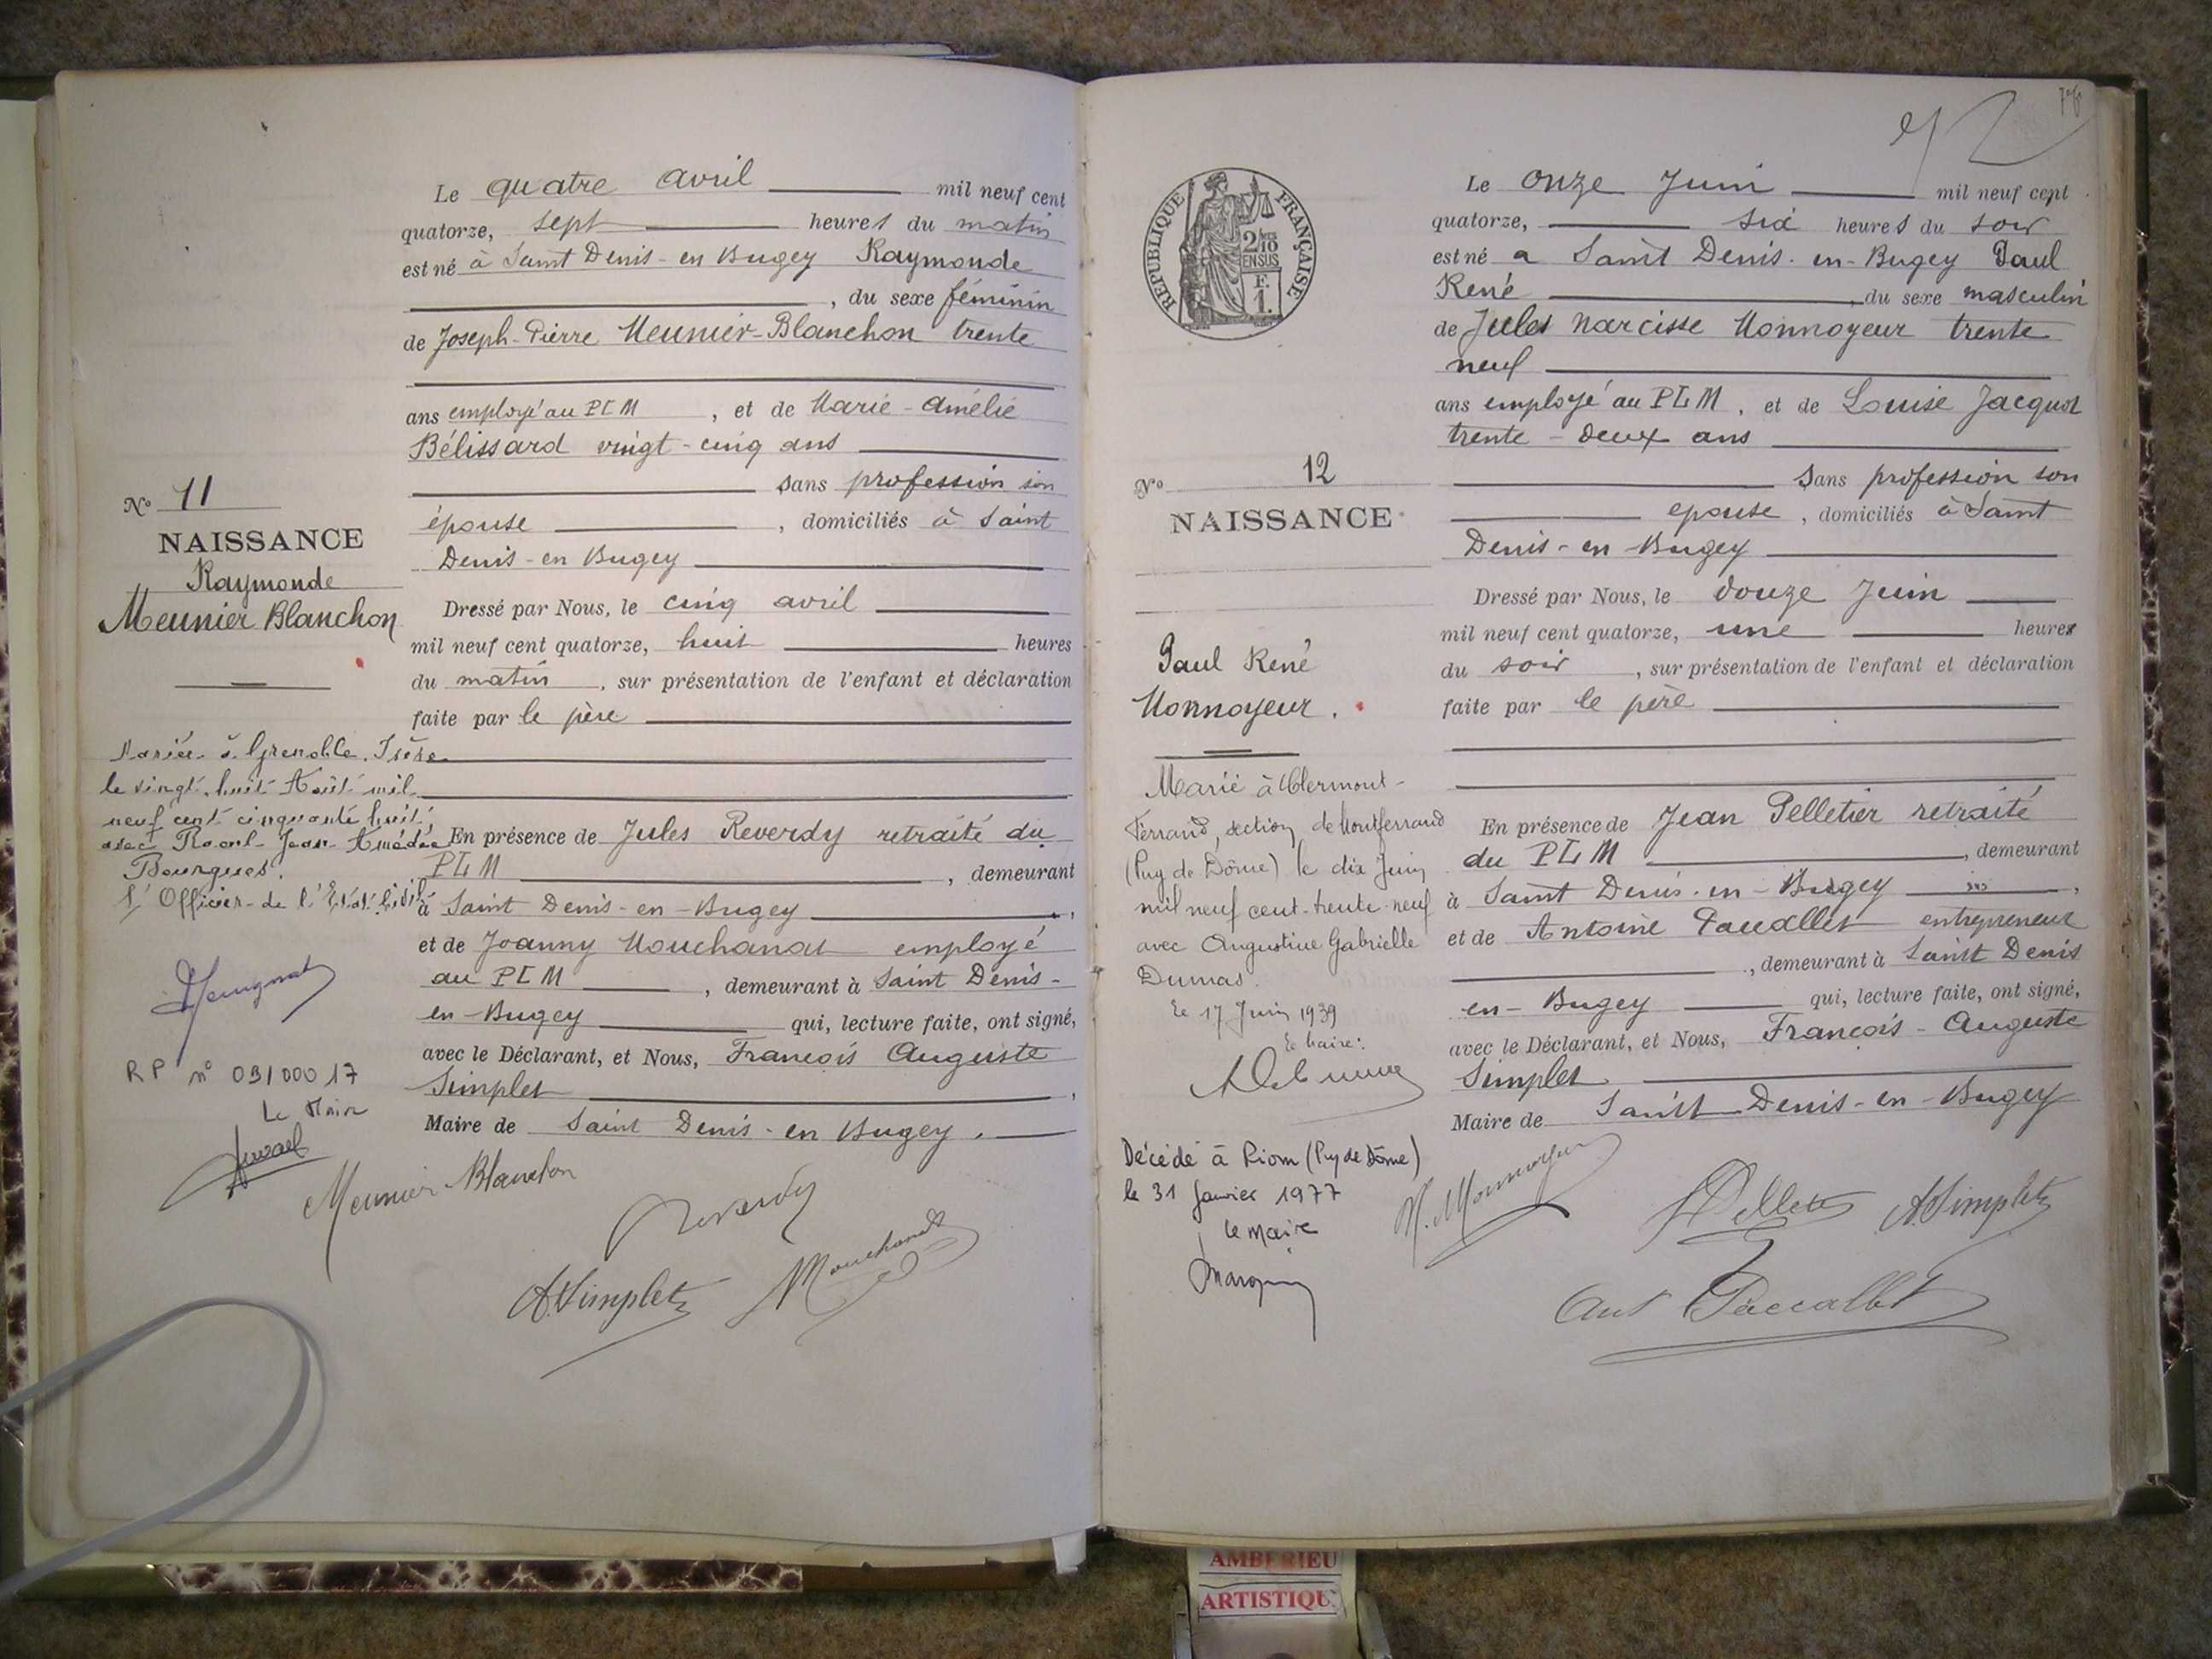 Le quatre avril mil neuf cent
quatorze, sept heures du matin
est né à Saint Denis-en Bugey Raymonde
, du sexe féminin
de Joseph-Pierre Meunier-Blanchon trente
ans employé au PLM , et de Marie-Amélie
Bélissard vingt-cinq ans
sans profession son
épouse , domiciliés à Saint
Denis-en Bugey
Dressé par Nous, le cinq avril
mil neuf cent quatorze, huit heures
du matin , sur présentation de l'enfant et déclaration
faite par le père
En présence de Jules Reverdy retraité du
PLM , demeurant
à Saint Denis-en-Bugey ,
et de Joanny Mouchanat employé
au PLM , demeurant à Saint Denis-
en-Bugey qui, lecture faite, ont signé,
avec le Déclarant, et Nous, François Auguste
Simplet ,
Maire de Saint Denis-en Bugey.
Nº 11
NAISSANCE
Raymonde
Meunier Blanchon
Mariée à Grenoble. Isère
le vingt-huit Août mil
neuf cent cinquante huit,
avec Raoul-Jean-Amédée
Bourgues.
L'Officier de l'Etat Civil
RP nº 091000 17
Le Maire
Meunier Blanchon
Reverdy
A. Simplet
Mouchanat
76
RÉPUBLIQUE FRANÇAISE
2/10
EN SUS
F.
1.
Le onze Juin mil neuf cent
quatorze, six heures du soir
est né a Saint Denis-en-Bugey Paul
René , du sexe masculin
de Jules Narcisse Monnoyeur trente
neuf
ans employé au PLM , et de Louise Jacquot
trente-deux ans
sans profession son
epouse , domiciliés à Saint
Denis-en-Bugey
Dressé par Nous, le douze Juin
mil neuf cent quatorze, une heures
du soir , sur présentation de l'enfant et déclaration
faite par le père
En présence de Jean Pelletier retraité
du PLM , demeurant
à Saint Denis-en-Bugey ,
et de Antoine Paccallet entrepreneur
, demeurant à Saint Denis
en-Bugey qui, lecture faite, ont signé,
avec le Déclarant, et Nous, François-Auguste
Simplet
Maire de Saint Denis-en-Bugey
Nº 12
NAISSANCE
Paul René
Monnoyeur.
Marié à Clermont-
Ferrand, section de Montferrand
(Puy de Dôme) le dix Juin
mil neuf cent trente-neuf
avec Augustine Gabrielle
Dumas.
Le 17 Juin 1939
Le Maire:
Décédé à Riom (Puy de Dôme)
le 31 Janvier 1977
le Maire
Monnoyeur
A. Simplet
Ant Paccallet
AMBERIEU
ARTISTIQU